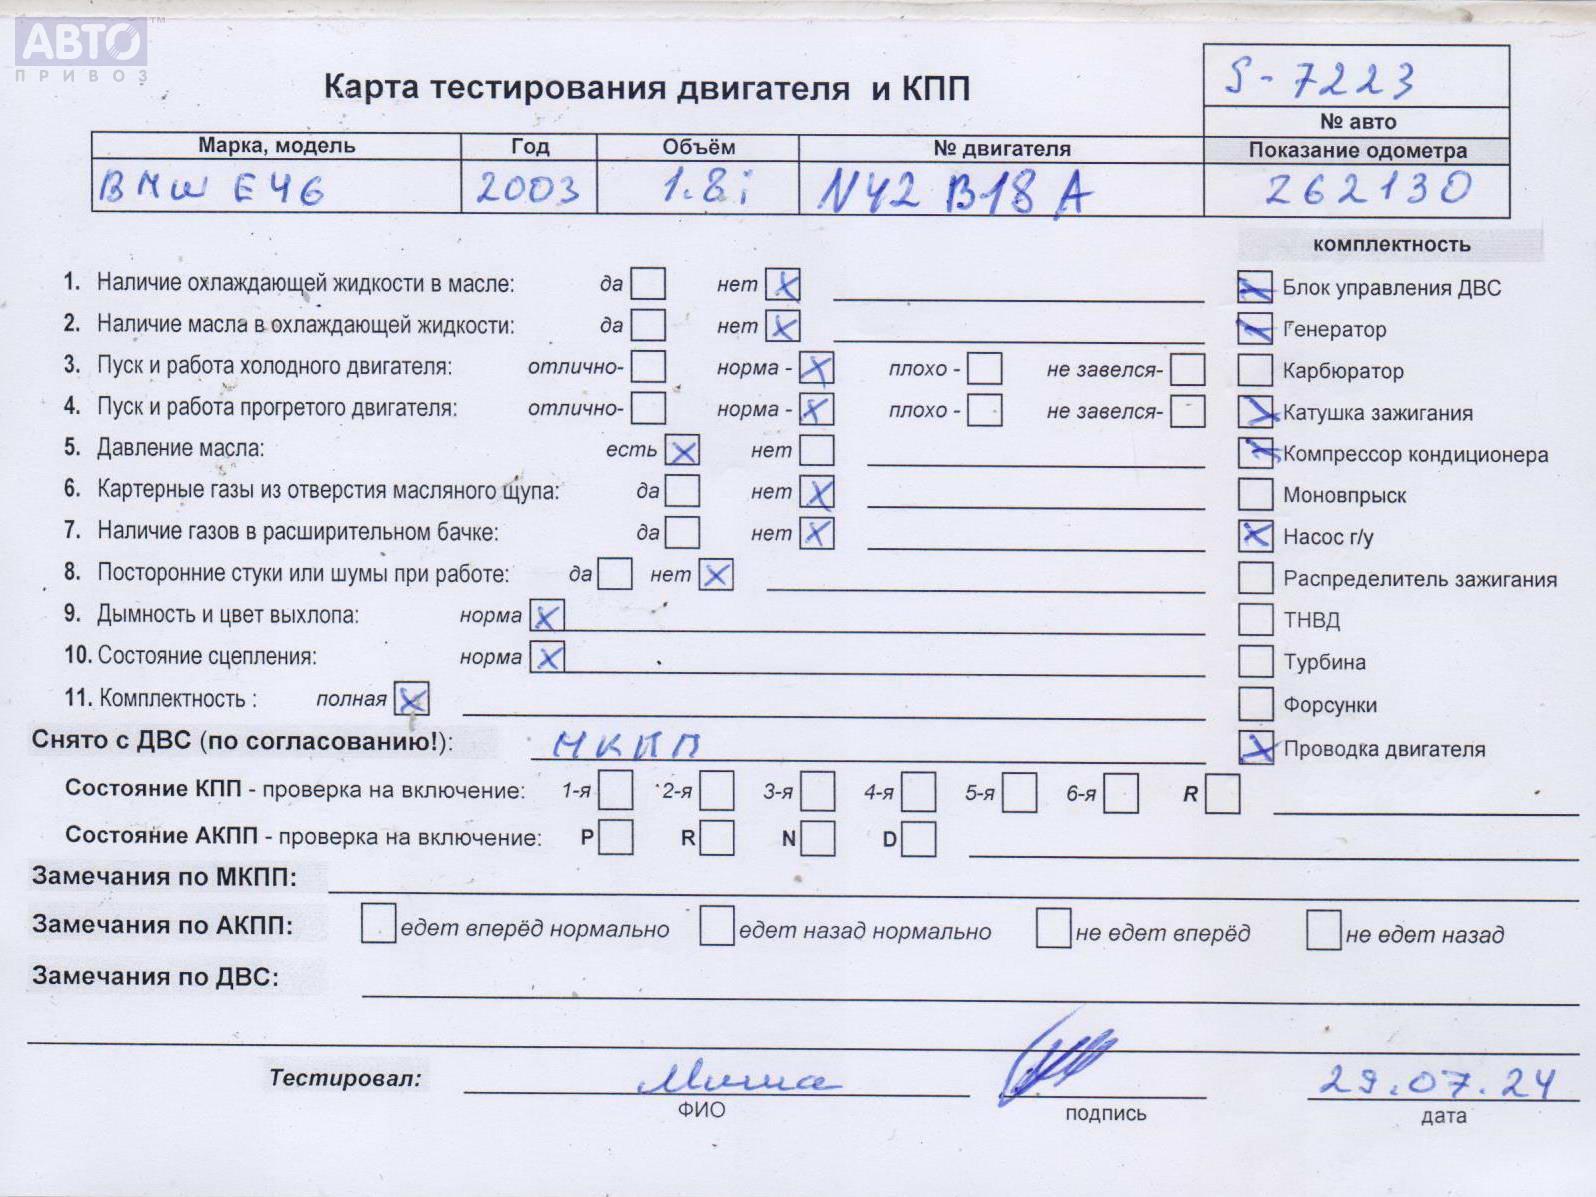 АВТО™
ПРИВОЗ
Карта тестирования двигателя и КПП
S-7223
№ авто
Марка, модель Год Объём № двигателя Показание одометра
BMW E46 2003 1.8i N42 B18 A 262130
комплектность
1. Наличие охлаждающей жидкости в масле: да нет X
2. Наличие масла в охлаждающей жидкости: да нет X
3. Пуск и работа холодного двигателя: отлично- норма - X плохо - не завелся-
4. Пуск и работа прогретого двигателя: отлично- норма - X плохо - не завелся-
5. Давление масла: есть X нет
6. Картерные газы из отверстия масляного щупа: да нет X
7. Наличие газов в расширительном бачке: да нет X
8. Посторонние стуки или шумы при работе: да нет X
9. Дымность и цвет выхлопа: норма X
10. Состояние сцепления: норма X
11. Комплектность : полная X
X Блок управления ДВС
X Генератор
Карбюратор
X Катушка зажигания
X Компрессор кондиционера
Моновпрыск
X Насос г/у
Распределитель зажигания
ТНВД
Турбина
Форсунки
X Проводка двигателя
Снято с ДВС (по согласованию!): МКПП
Состояние КПП - проверка на включение: 1-я 2-я 3-я 4-я 5-я 6-я R
Состояние АКПП - проверка на включение: P R N D
Замечания по МКПП:
Замечания по АКПП: едет вперёд нормально едет назад нормально не едет вперёд не едет назад
Замечания по ДВС:
Тестировал: Миша 29.07.24
ФИО подпись дата